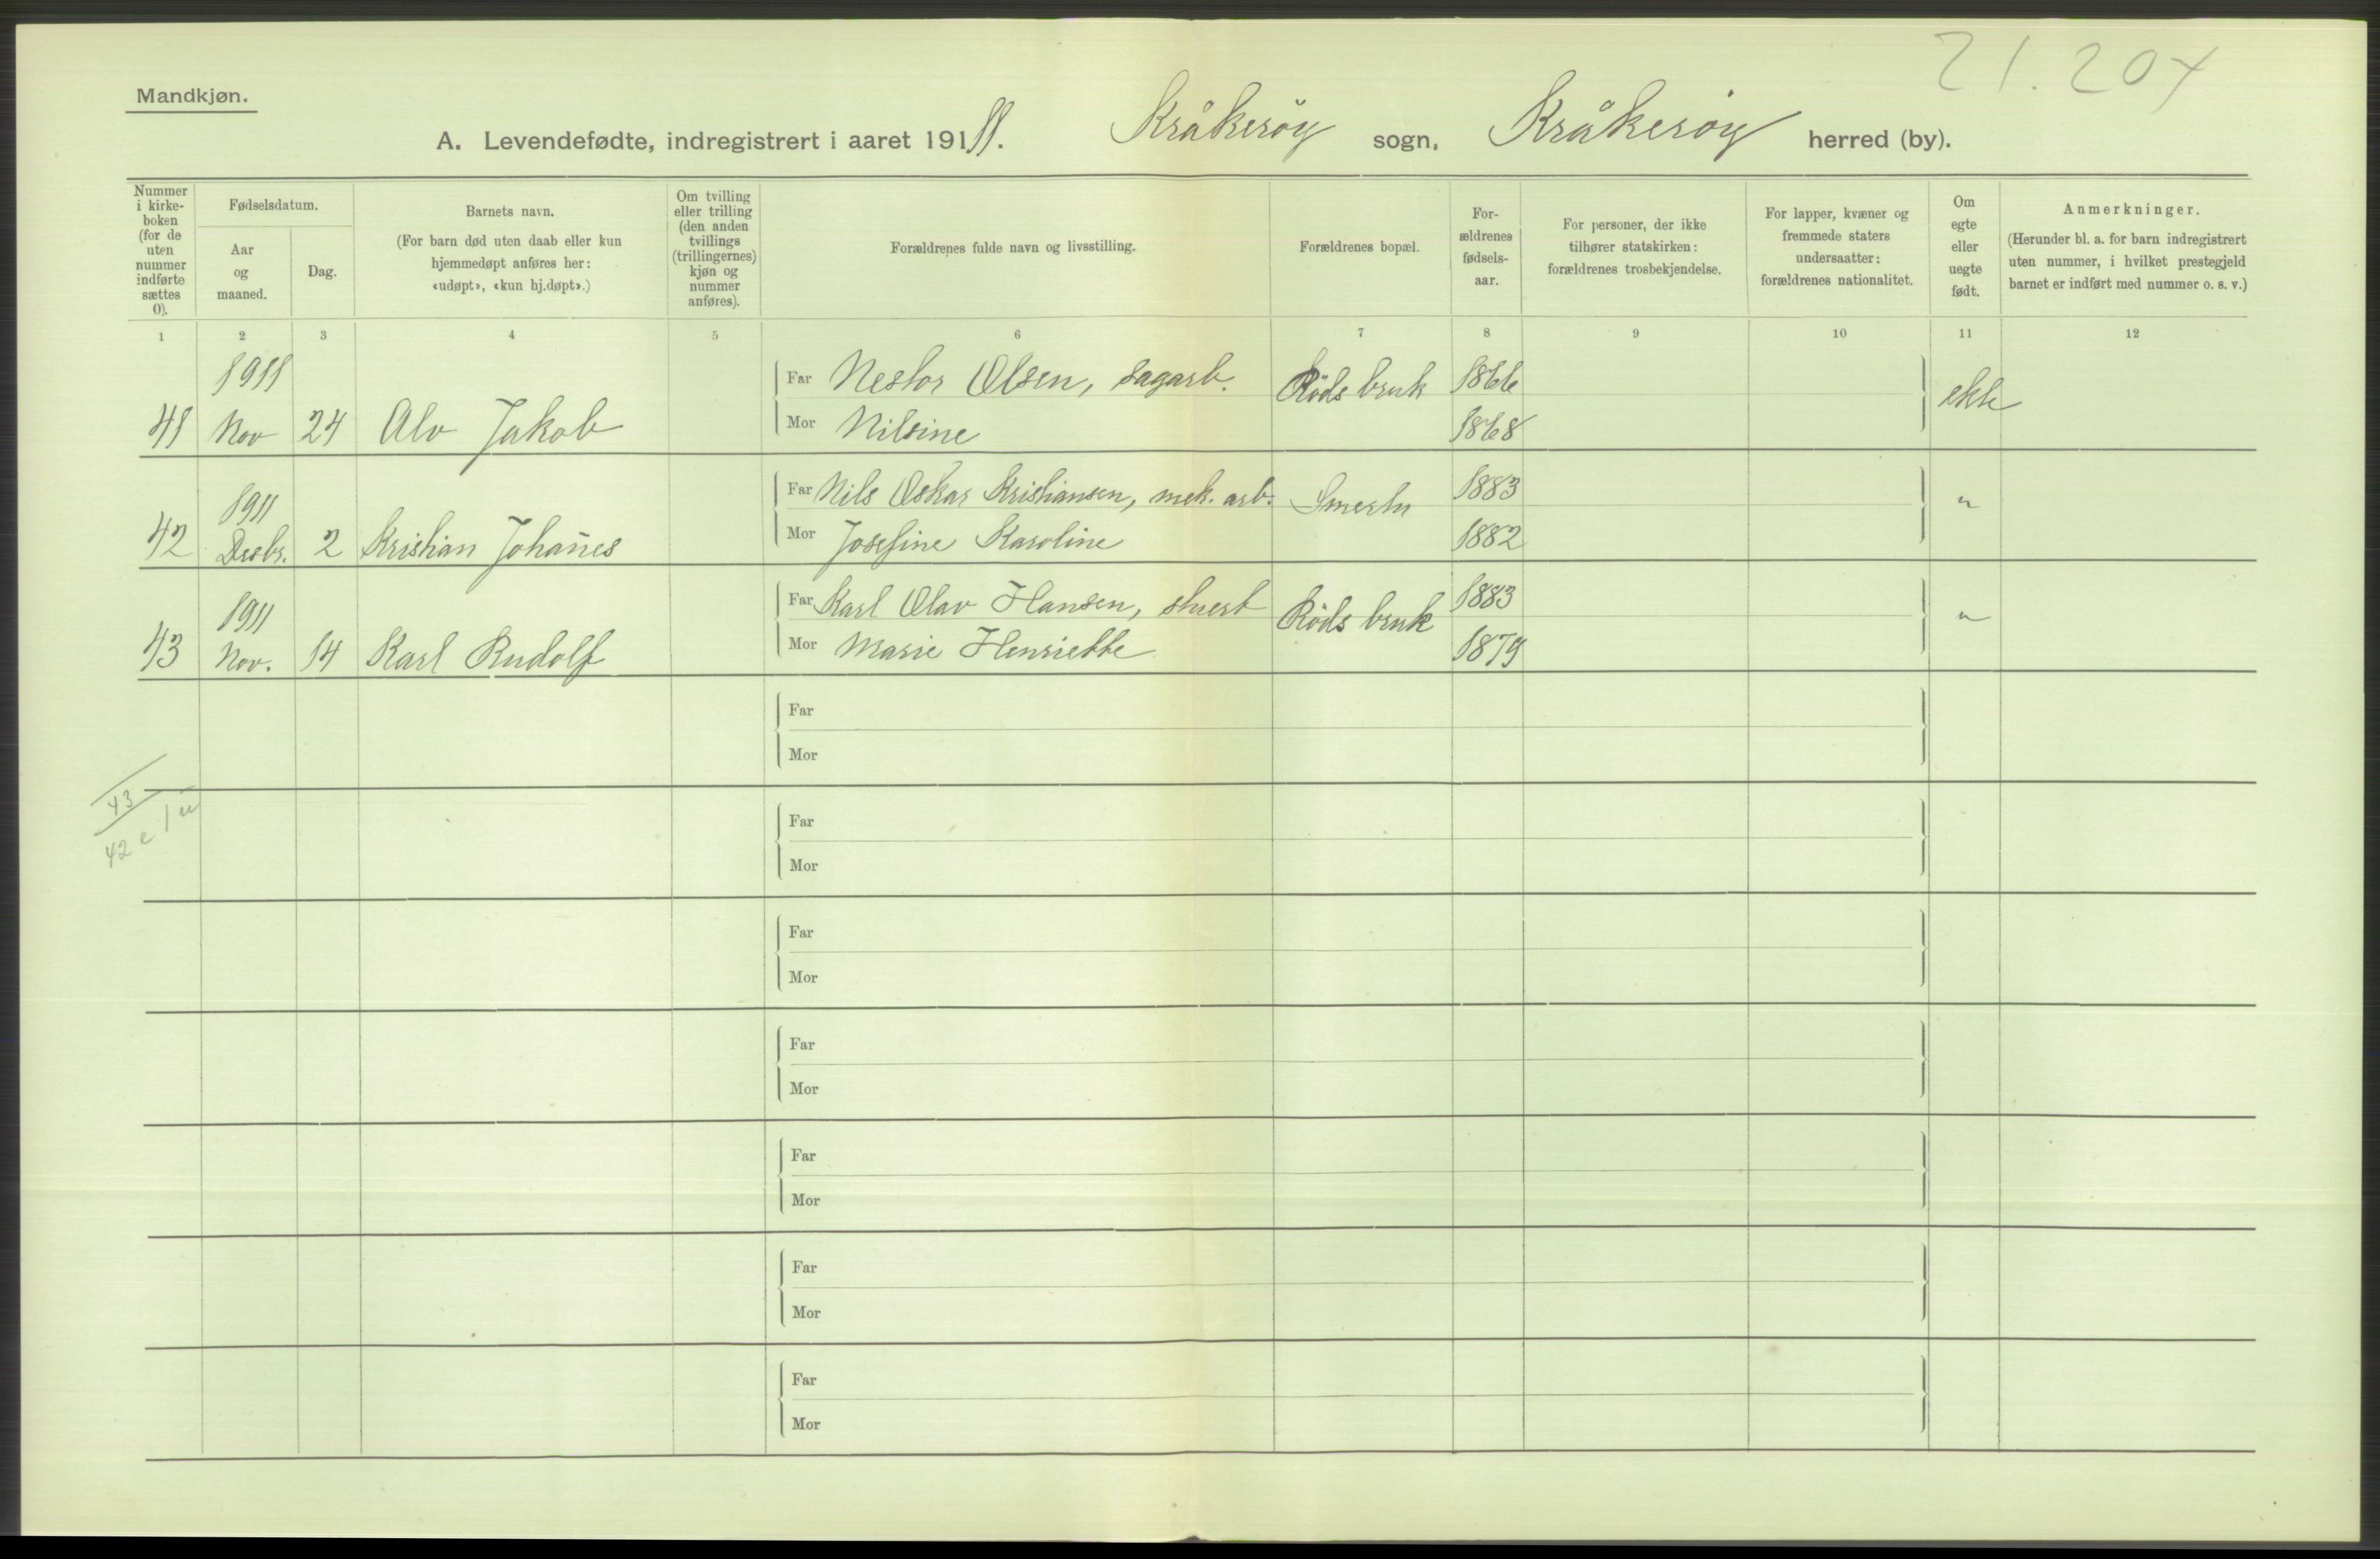 21.204
Mandkjøn.
A. Levendefødte, indregistrert i aaret 1911. Kråkeröy sogn, Kråkeröy herred (by).
Nummer
i kirke-
boken
(for de
uten
nummer
indførte
sættes
0).
Fødselsdatum.
Aar
og
maaned.
Dag.
Barnets navn.
(For barn død uten daab eller kun
hjemmedøpt anføres her:
«udøpt», «kun hj.døpt».)
Om tvilling
eller trilling
(den anden
tvillings
(trillingernes)
kjøn og
nummer
anføres).
Forældrenes fulde navn og livsstilling.
Forældrenes bopæl.
For-
ældrenes
fødsels-
aar.
For personer, der ikke
tilhører statskirken:
forældrenes trosbekjendelse.
For lapper, kvæner og
fremmede staters
undersaatter:
forældrenes nationalitet.
Om
egte
eller
uegte
født.
Anmerkninger.
(Herunder bl. a. for barn indregistrert
uten nummer, i hvilket prestegjeld
barnet er indført med nummer o. s. v.)
1 2 3 4 5 6 7 8 9 10 11 12
1911 Far Nestor Olsen, sagarb. Röds bruk 1866 ekte
41 Nov 24 Alv Jakob Mor Nilsine 1868
1911 Far Nils Oskar Kristiansen, mek. arb. Smertu 1883 "
42 Desbr. 2 Kristian Johan̄es Mor Josefine Karoline 1882
1911 Far Karl Olav Hansen, stuert Röds bruk 1883 "
43 Nov. 14 Karl Rudolf Mor Marie Henriette 1879
Far
Mor
43
42 e 1 u
Far
Mor
Far
Mor
Far
Mor
Far
Mor
Far
Mor
Far
Mor